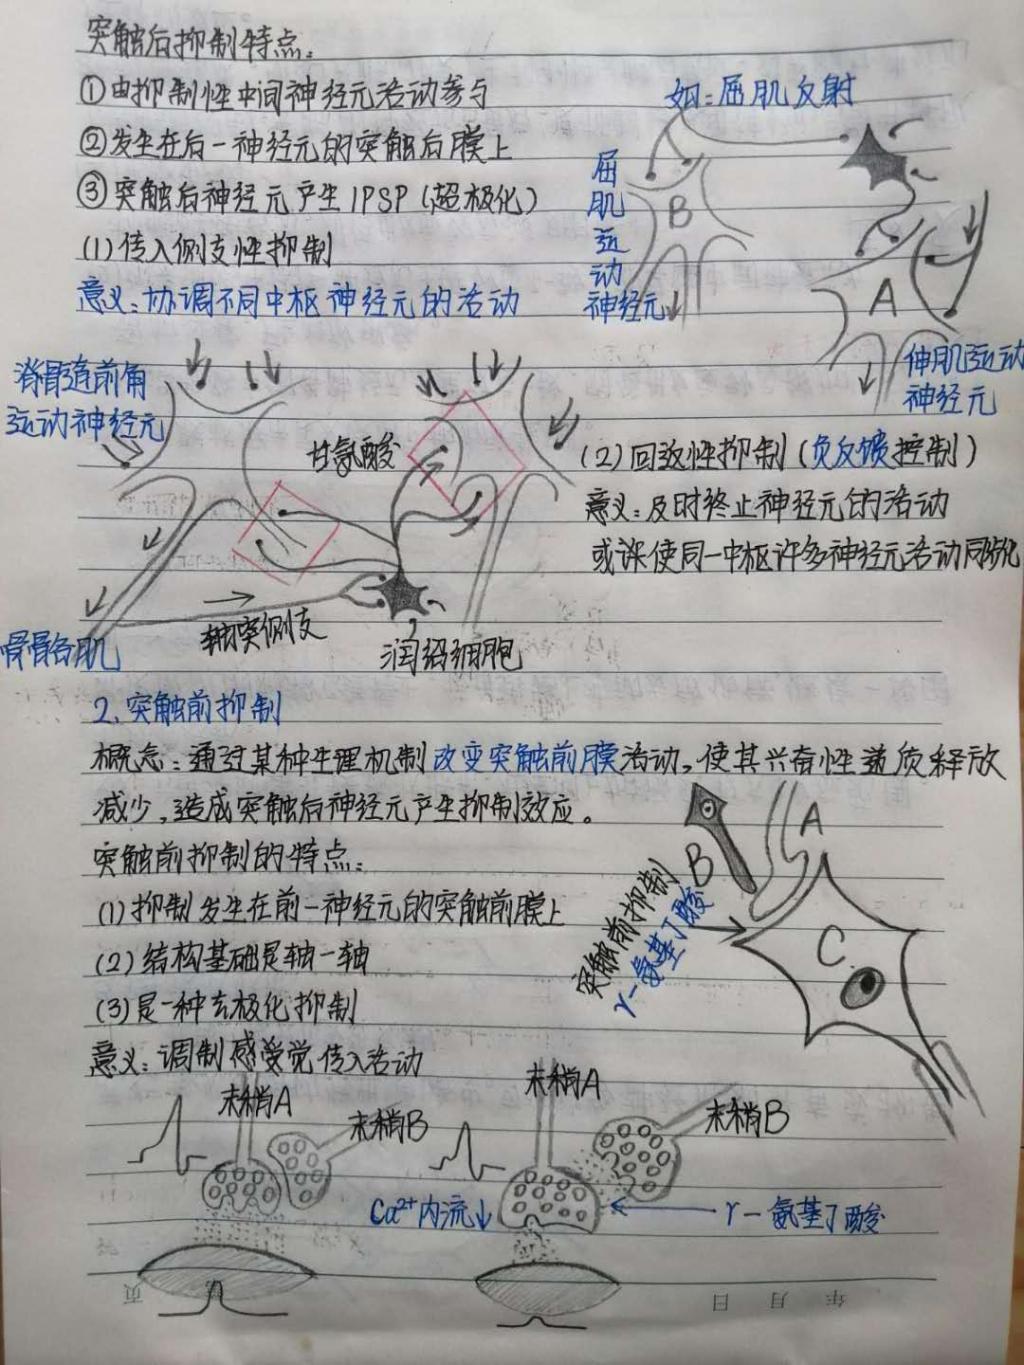 突触后抑制特点：
①由抑制性中间神经元活动参与
如：屈肌反射
②发生在后一神经元的突触后膜上
③突触后神经元产生IPSP(超极化)
(1)传入侧支性抑制
意义：协调不同中枢神经元的活动
屈肌运动神经元
B
A
伸肌运动
神经元
脊骨遀前角
运动神经元
甘氨酸
(2)回返性抑制(负反馈控制)
意义：及时终止神经元的活动
或使同一中枢许多神经元活动同步化
轴突侧支
润绍细胞
骨骼肌
2.突触前抑制
概念：通过某种生理机制改变突触前膜活动，使其兴奋性递质释放
减少，造成突触后神经元产生抑制效应。
突触前抑制的特点：
(1)抑制发生在前一神经元的突触前膜上
(2)结构基础是轴-轴
(3)是一种去极化抑制
意义：调制感受觉传入活动
A
B
C
突触前抑制
γ-氨基丁酸
末稍A
末稍B
末稍A
末稍B
Ca²⁺内流↓
γ-氨基丁酸
年 月 日
页